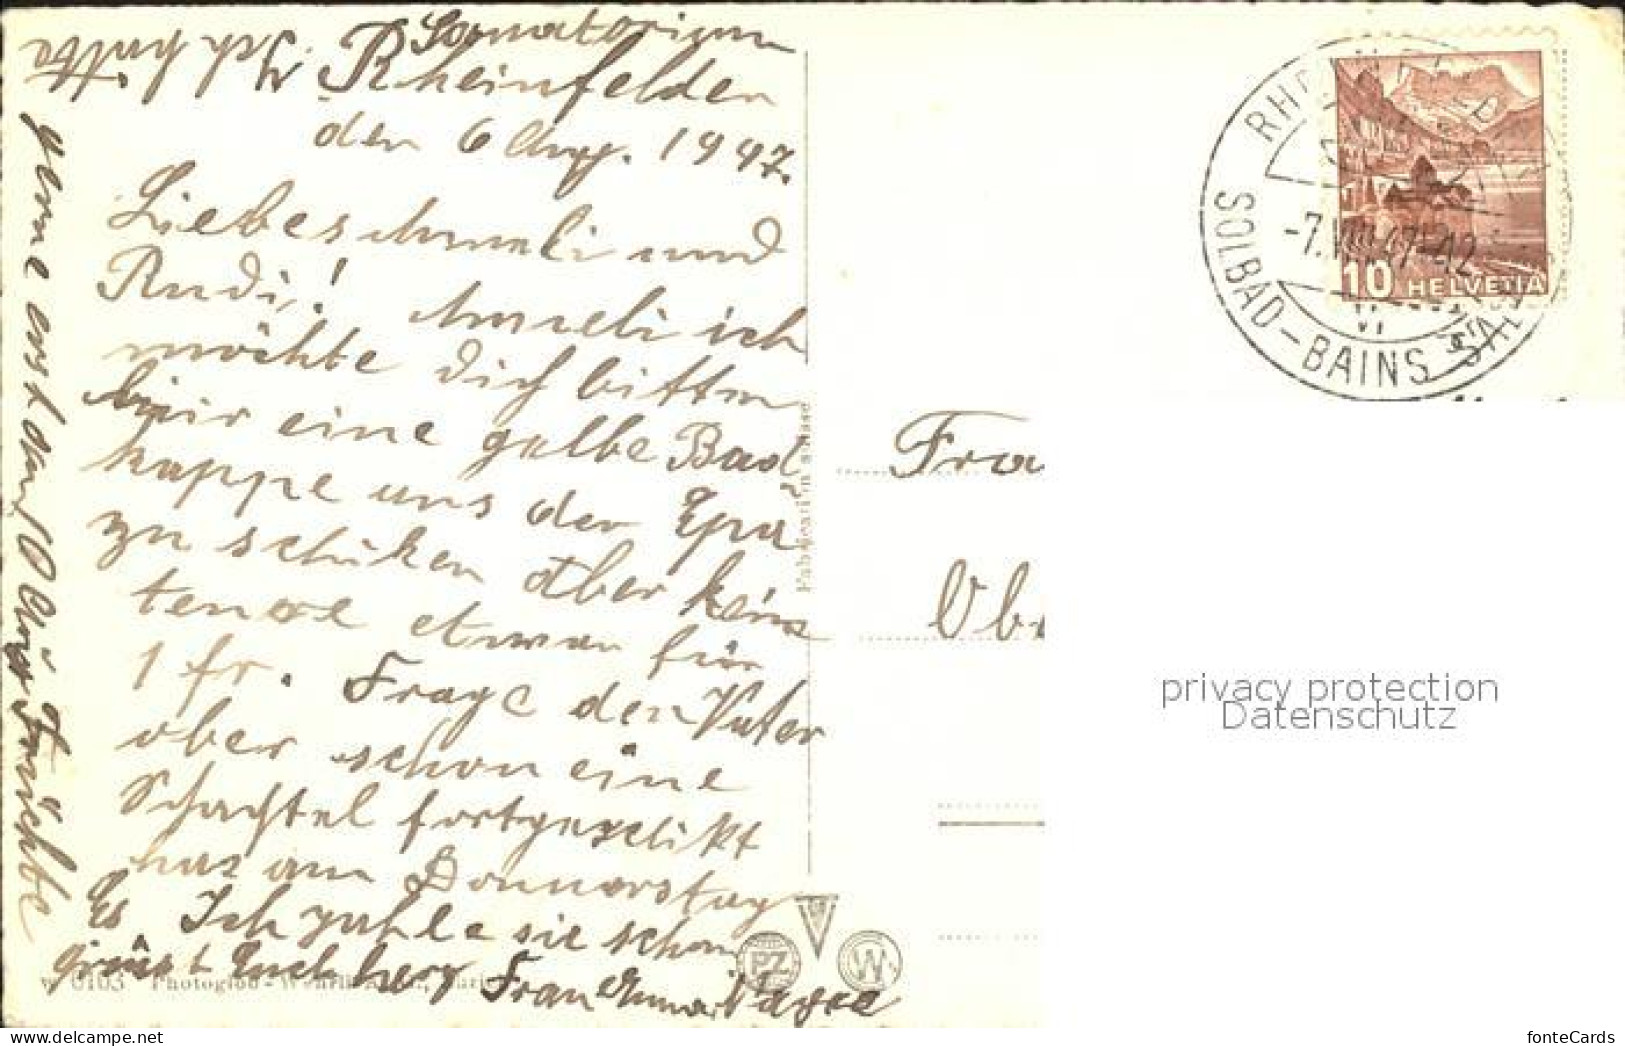 Sonnatorium
Rheinfelden
den 6 Aug. 1947.
Liebes Anneli und
Rudi! Anneli ich
möchte dich bitten
mir eine gelbe Bad
kappe uns der Epa
zu schiken Aber kein
teuoe etwan für
1 fr. Frage den Vater
ober schon eine
Schachtel fortgeschikt
has am Donnerstag
Es Ich zahle sie schon
grüsst Euch herz Frau Anna
Ich hatte
gerne erst am 10 Früchte
RHEINFELDEN
SOLBAD-BAINS SAL
-7.VIII.47-12
VI
10 HELVETIA
Fabrication suisse
Fra
Obe
PZ
W
W 6103 Photoglob-Wehrli
privacy protection
Datenschutz
fonteCards